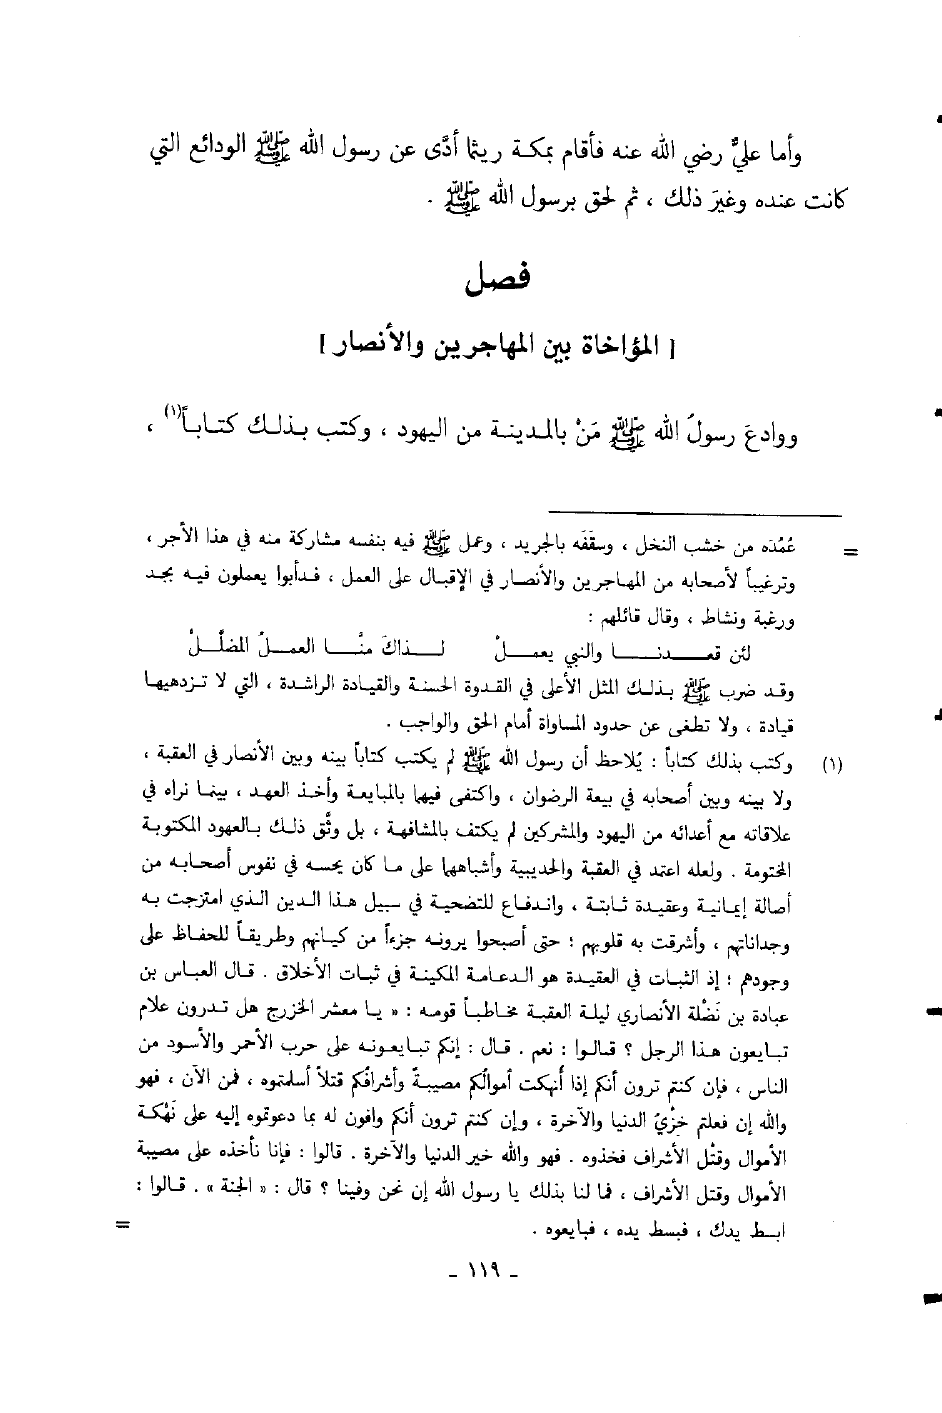 وأما عليٌّ رضي الله عنه فأقام بمكة ريثما أدَّى عن رسول الله ﷺ الودائع التي
كانت عنده وغيرَ ذلك ، ثم لحق برسول الله ﷺ .
فصل
[ المؤاخاة بين المهاجرين والأنصار ]
ووادعَ رسولُ الله ﷺ مَنْ بالمدينة من اليهود ، وكتب بذلك كتاباً(١) ،
= عُمُدَه من خشب النخل ، وسقَفَه بالجريد ، وعمل ﷺ فيه بنفسه مشاركة منه في هذا الأجر ،
وترغيباً لأصحابه من المهاجرين والأنصار في الإقبال على العمل ، فدأبوا يعملون فيه بجد
ورغبة ونشاط ، وقال قائلهم :
لئن قعدنا والنبي يعملْ لذاكَ منَّا العملُ المضلَّلْ
وقد ضرب ﷺ بذلك المثل الأعلى في القدوة الحسنة والقيادة الراشدة ، التي لا تزدهيها
قيادة ، ولا تطغى عن حدود المساواة أمام الحق والواجب .
(١) وكتب بذلك كتاباً : يُلاحظ أن رسول الله ﷺ لم يكتب كتاباً بينه وبين الأنصار في العقبة ،
ولا بينه وبين أصحابه في بيعة الرضوان ، واكتفى فيها بالمبايعة وأخذ العهد ، بينما نراه في
علاقاته مع أعدائه من اليهود والمشركين لم يكتف بالمشافهة ، بل وثَّق ذلك بالعهود المكتوبة
المختومة . ولعله اعتمد في العقبة والحديبية وأشباهها على ما كان يحسه في نفوس أصحابه من
أصالة إيمانية وعقيدة ثابتة ، واندفاع للتضحية في سبيل هذا الدين الذي امتزجت به
وجداناتهم ، وأشرقت به قلوبهم ؛ حتى أصبحوا يرونه جزءاً من كيانهم وطريقاً للحفاظ على
وجودهم ؛ إذ الثبات في العقيدة هو الدعامة المكينة في ثبات الأخلاق . قال العباس بن
عبادة بن نَضْلة الأنصاري ليلة العقبة مخاطباً قومه : « يا معشر الخزرج هل تدرون علام
تبايعون هذا الرجل ؟ قالوا : نعم . قال : إنكم تبايعونه على حرب الأحمر والأسود من
الناس ، فإن كنتم ترون أنكم إذا أُنهكت أموالُكم مصيبةً وأشرافُكم قتلاً أسلمتموه ، فمن الآن ، فهو
والله إن فعلتم خزْيُ الدنيا والآخرة ، وإن كنتم ترون أنكم وافون له بما دعوتموه إليه على نَهْكة
الأموال وقتْل الأشراف فخذوه . فهو والله خير الدنيا والآخرة . قالوا : فإنا نأخذه على مصيبة
الأموال وقتل الأشراف ، فما لنا بذلك يا رسول الله إن نحن وفينا ؟ قال : « الجنة » . قالوا :
ابسط يدك ، فبسط يده ، فبايعوه . =
- ١١٩ -